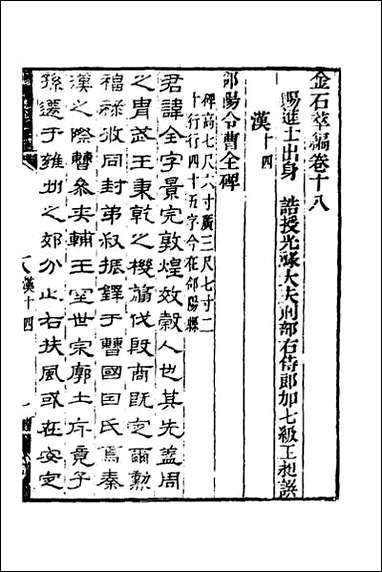 金石萃編卷十八
賜進士出身　誥授光祿大夫刑部右侍郎加七級王昶譔
漢十四
郃陽令曹全碑
碑高七尺六寸廣三尺七寸二
十行行四十五字今在郃陽縣
君諱全字景完敦煌效穀人也其先蓋周
之冑武王秉乾之機翦伐殷商既定爾勳
福祿攸同封弟叔振鐸于曹國因氏焉秦
漢之際曹參夾輔王室世宗廓土斥竟子
孫遷于雍州之郊分止右扶風或在安定
漢十四